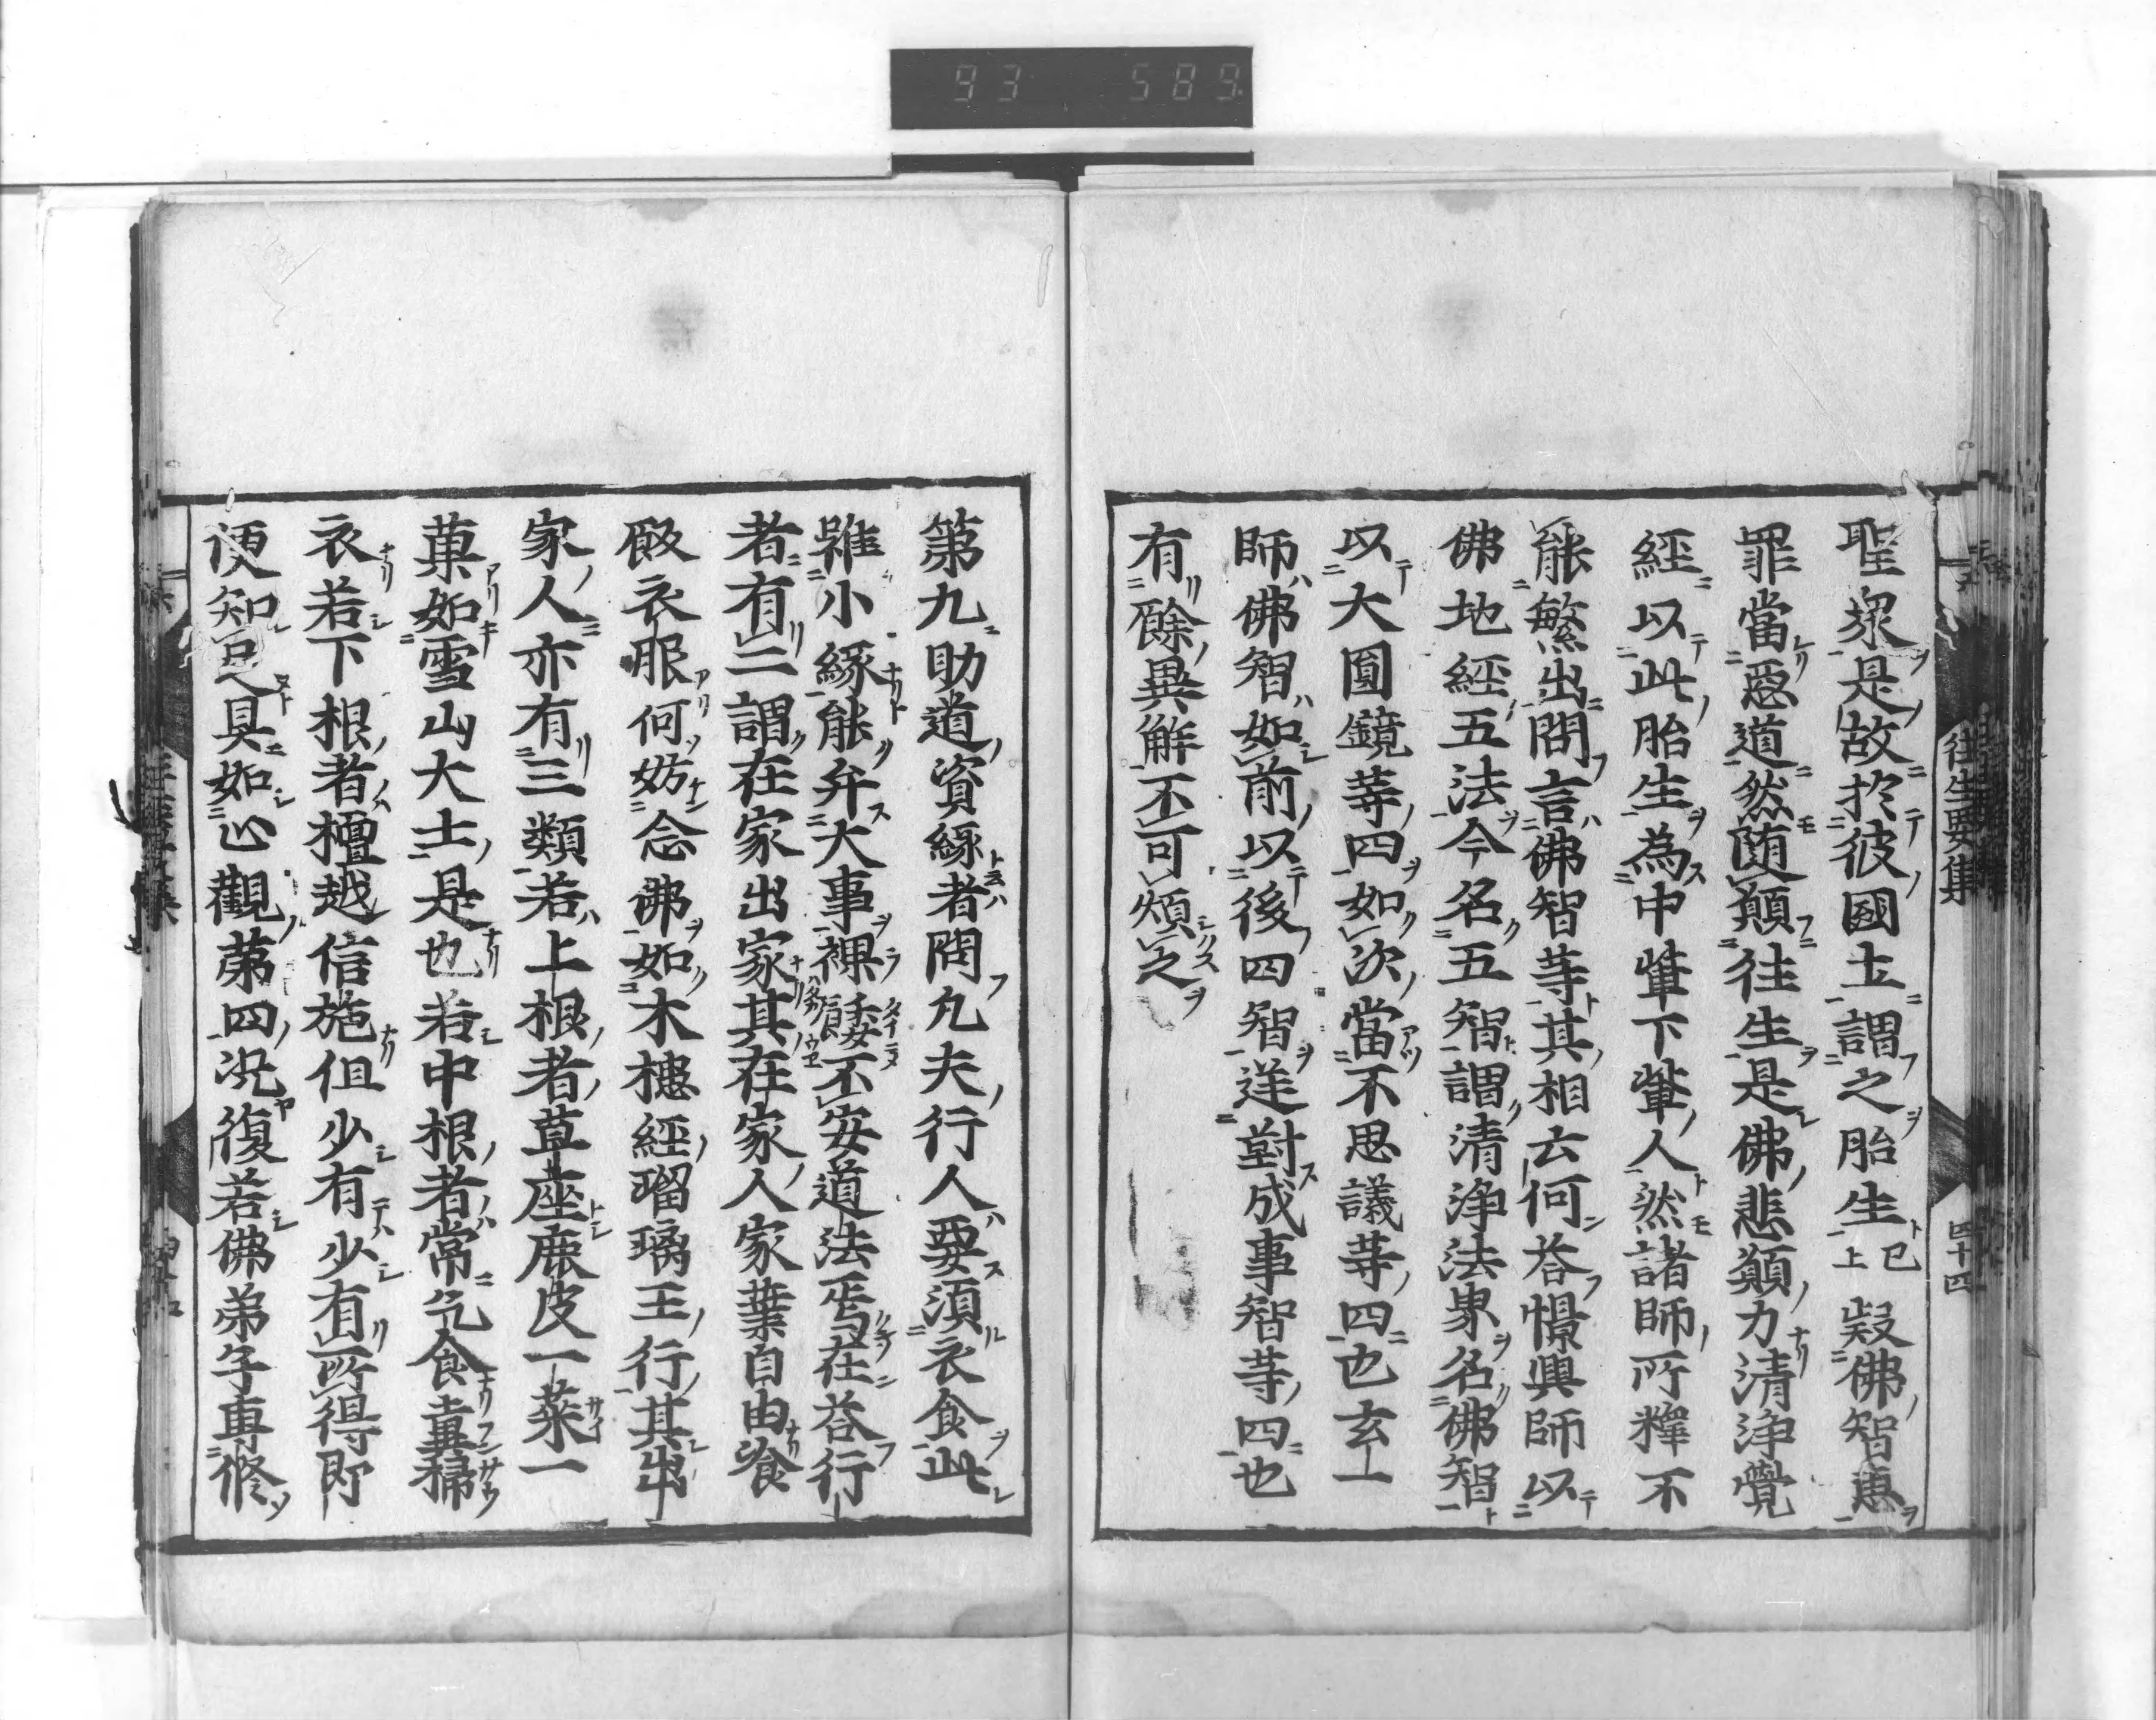 93 589.
往生要集
四十四
聖衆是故於彼國土謂之胎生已上疑佛智恵
罪當惡道然随願往生是佛悲願力清浄覺
經以此胎生為中輩下輩人然諸師所釋不
能繁出問言佛智等其相云何荅憬興師以
佛地經五法今名五智謂清浄法界名佛智
以大圓鏡等四如次當不思議等四也玄一
師佛智如前以後四智逆對成事智等四也
有餘異解不可煩之
第九助道資縁者問凡夫行人要須衣食此
雖小縁能弁大事裸餧不安道法焉在荅行
者有二謂在家出家其在家人家業自由飡
飯衣服何妨念佛如木槵經瑠璃王行其出
家人亦有三類若上根者草座鹿皮一菜一
菓如雪山大士是也若中根者常乞食糞掃
衣若下根者檀越信施但少有少有所得即
便知足具如止觀第四況復若佛弟子専修